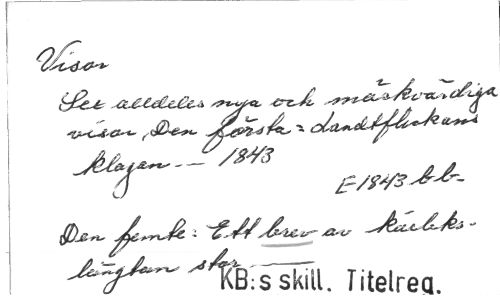 Visor
Sex alldeles nya och märkvärdiga
visor, Den första = Landtflickans
klagan. — 1843
E 1843 bb-
Den femte: Ett brev av kärleks-
längtan stor
KB:s skill. Titelreg.